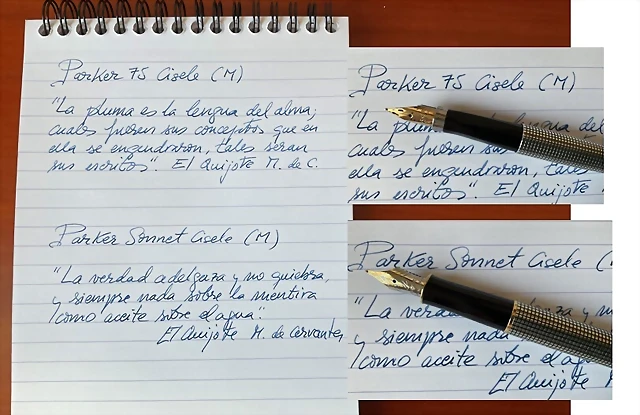 Parker 75 Cisele (M)
"La pluma es la lengua del alma;
cuales fueren sus conceptos que en
ella se engendraron, tales serán
sus escritos". El Quijote M. de C.
Parker Sonnet Cisele (M)
"La verdad adelgaza y no quiebra,
y siempre nada sobre la mentira
como aceite sobre el agua".
El Quijote M. de Cervantes
Parker 75 Cisele (M)
"La plum lengua del
cuales fueren sus
ella se engendraron, tales
sus escritos". El Quijote
Parker Sonnet Cisele (
"La verda za y n
y siempre nada
como aceite sobre el agu
El Quijote M